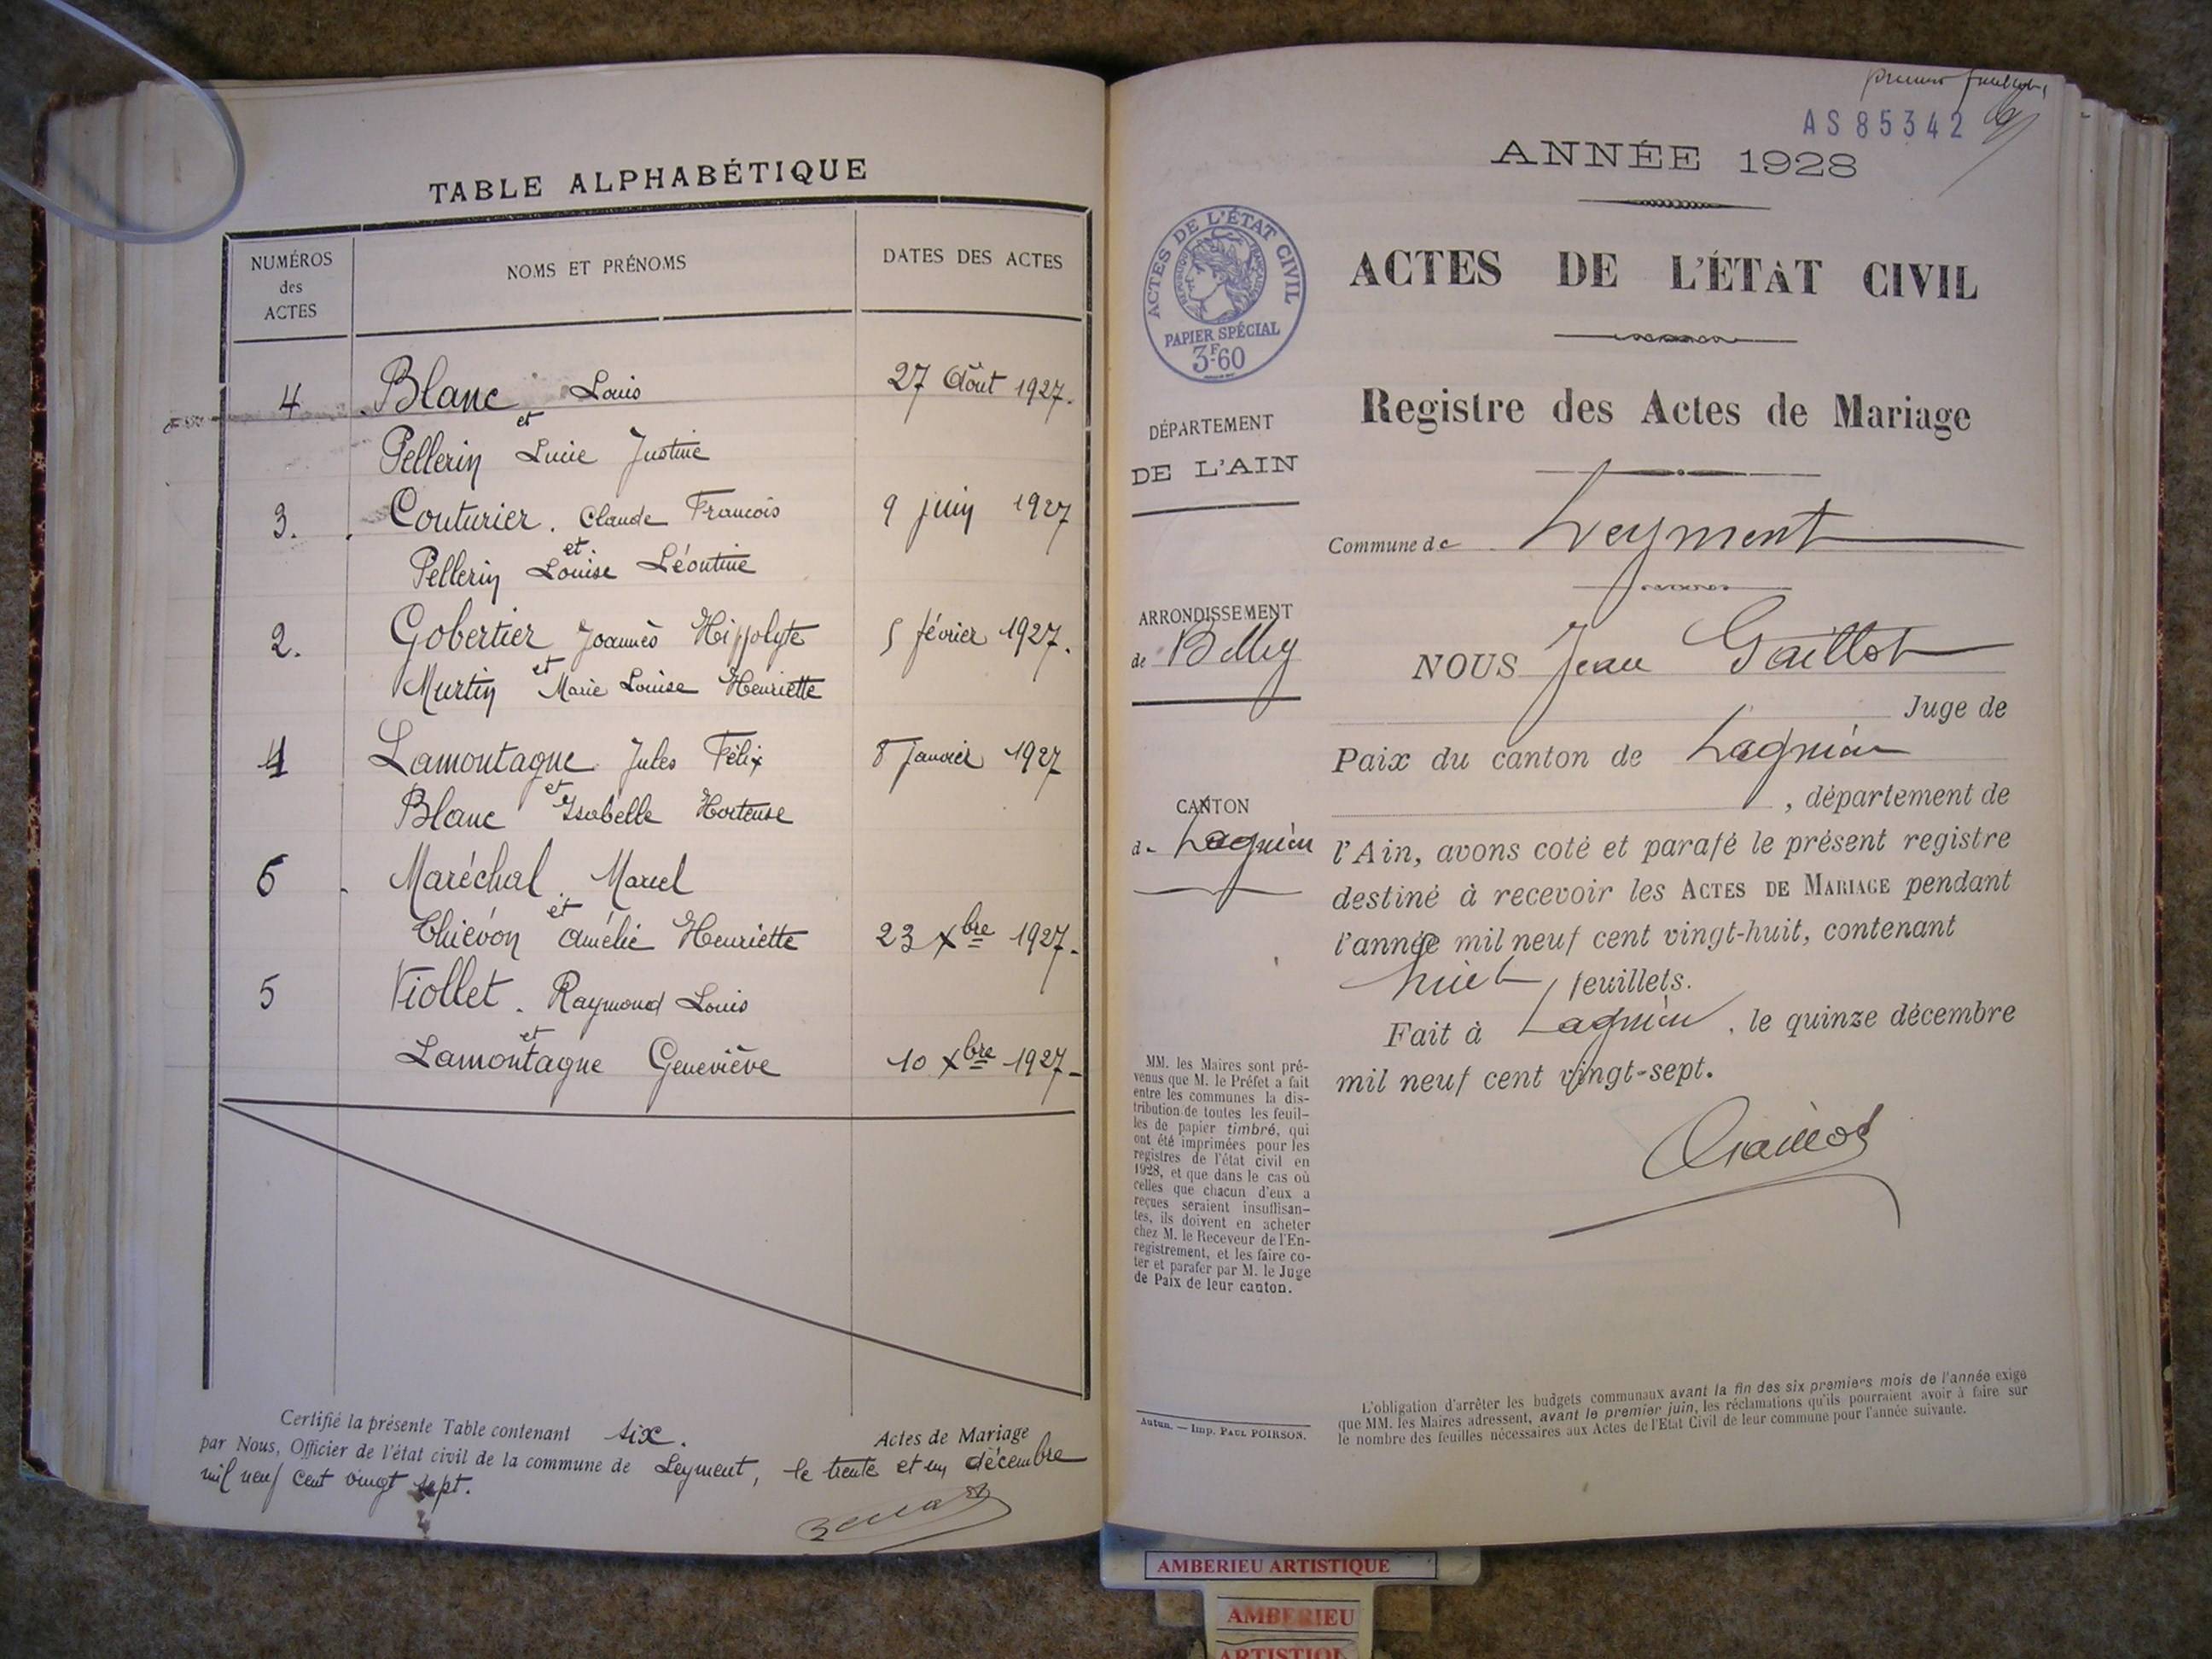 TABLE ALPHABÉTIQUE
NUMÉROS
des
ACTES
NOMS ET PRÉNOMS
DATES DES ACTES
4 Blanc Louis 27 Août 1927.
et
Pellerin Lucie Justine
3. Couturier. Claude François 9 juin 1927
et
Pellerin Louise Léontine
2. Gobertier Joannès Hippolyte 5 février 1927.
et
Murtin Marie Louise Henriette
1 Lamontagne Jules Félix 8 janvier 1927
et
Blanc Isabelle Hortense
6 Maréchal. Marcel
et
Thiévon Amélie Henriette 23 Xbre 1927.
5 Viollet. Raymond Louis
et
Lamontagne Geneviève 10 Xbre 1927
Certifié la présente Table contenant six. Actes de Mariage
par Nous, Officier de l'état civil de la commune de Leyment, le trente et un décembre
mil neuf cent vingt sept.
premier
AS 85342
ANNÉE 1928
ACTES DE L'ÉTAT CIVIL
RÉPUBLIQUE FRANÇAISE
PAPIER SPÉCIAL
3F.60
ACTES DE L'ÉTAT CIVIL
Registre des Actes de Mariage
DÉPARTEMENT
DE L'AIN
Commune de Leyment
ARRONDISSEMENT
de Belley
CANTON
de Lagnieu
NOUS Jean Gaillot
Juge de
Paix du canton de Lagnieu
, département de
l'Ain, avons coté et parafé le présent registre
destiné à recevoir les ACTES DE MARIAGE pendant
l'année mil neuf cent vingt-huit, contenant
huit feuillets.
Fait à Lagnieu, le quinze décembre
mil neuf cent vingt-sept.
Gaillot
MM. les Maires sont pré-
venus que M. le Préfet a fait
entre les communes la dis-
tribution de toutes les feuil-
les de papier timbré, qui
ont été imprimées pour les
registres de l'état civil en
1928, et que dans le cas où
celles que chacun d'eux a
reçues seraient insuffisan-
tes, ils doivent en acheter
chez M. le Receveur de l'En-
registrement, et les faire co-
ter et parafer par M. le Juge
de Paix de leur canton.
Autun. — Imp. PAUL POIRSON.
L'obligation d'arrêter les budgets communaux avant la fin des six premiers mois de l'année exige
que MM. les Maires adressent, avant le premier juin, les réclamations qu'ils pourraient avoir à faire sur
le nombre des feuilles nécessaires aux Actes de l'Etat Civil de leur commune pour l'année suivante.
AMBERIEU ARTISTIQUE
AMBERIEU